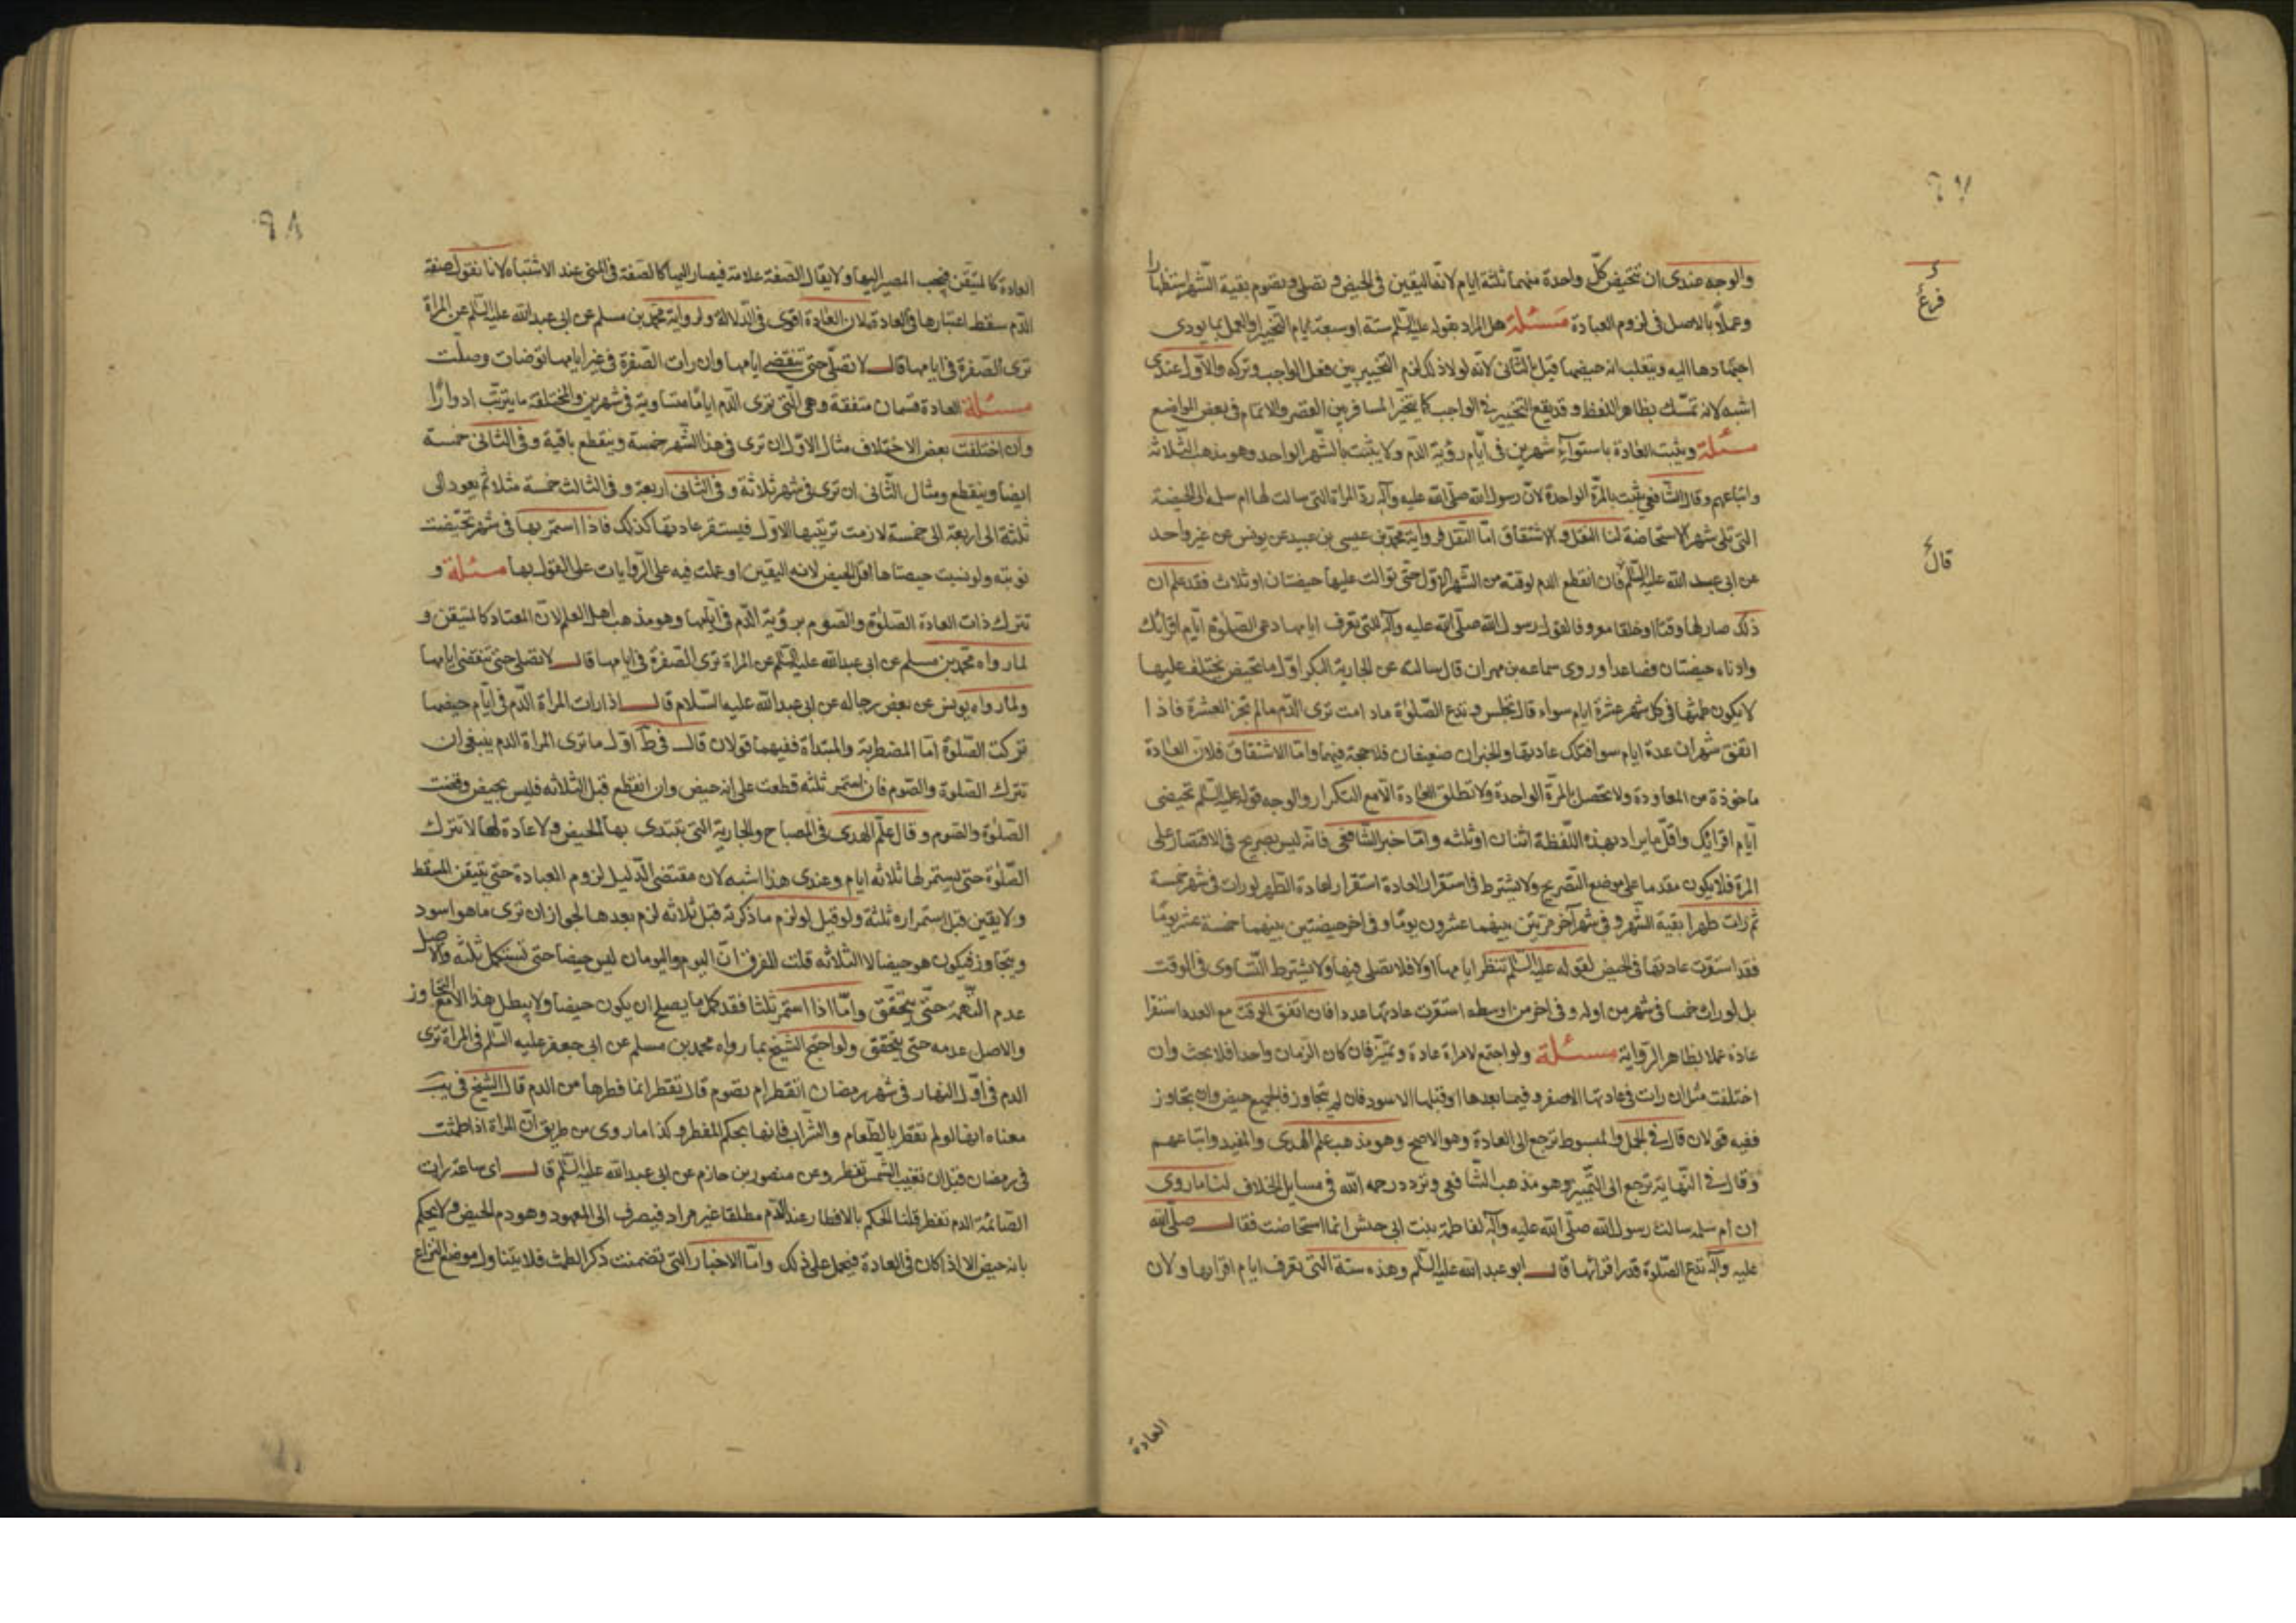 والوجه عندى ان تتحيض كلّ واحدة منهما ثلثة ايام لانّه اليقين فى الحيض و تصلى و تصوم بقية الشّهر استظهارا
وعملاً بالاصل فى لزوم العبادة مسئلة هل المراد بقوله عليه السّلم ستة او سبعة ايام التخيير او العمل بما يودى
اجتهادها اليه ويتغلب انه حيضها قيل بالثّانى لانّه لولا ذلك لزم التخيير بين فعل الواجب وتركه والاوّل عندى
اشبه لانه تمسّك بظاهر اللفظ و قد يقع التخيير فى الواجب كما يتخيّر المسافر بين القصر والاتمام فى بعض المواضع
مسئلة ويثبت العادة باستواء شهرين فى ايّام رؤية الدّم ولا يثبت بالشّهر الواحد وهو مذهب الثّلاثة
واتباعهم وقال الشّافعى يثبت بالمرّة الواحدة لانّ رسول الله صلّى الله عليه وآله ردّ المراة التى سالت لها ام سلمه الى الحيضة
التى تلى شهر الاستحاضة لنا النقل و الاشتقاق امّا النّقل فرواية محمّد بن عيسى بن عبيد عن يونس عن غير واحد
عن ابى عبد الله عليه السّلم فان انقطع الدم لوقته من الشّهر الاوّل حتّى توالت عليها حيضتان او ثلاث فقد علم ان
ذلك صار لها وقتا وخلقا معروفا لقول رسول الله صلّى الله عليه وآله للتى تعرف ايامها دعى الصّلوة ايّام اقرائك
وادناه حيضتان فصاعدا وروى سماعه بن مهران قال سالته عن الجارية البكر اوّل ما تحيض يختلف عليها
لا يكون طمثها فى كل شهر عدة ايام سواء قال تجلس و تدع الصّلوة ما دامت ترى الدّم ما لم تجز العشرة فاذا
اتفق شهران عدة ايام سوا فتلك عادتها والخبران ضعيفان فلا حجة فيهما وامّا الاشتقاق فلان العادة
ماخوذة من المعاودة ولا تحصل بالمرّة الواحدة ولا تطلق العادة الّا مع التكرار والوجه قوله عليه السّلم تحيضى
ايّام اقرائك واقلّ ما يراد بهذه اللّفظة اثنان او ثلثه وامّا خبر الشّافعى فانّه ليس بصريح فى الاقتصار على
المرّة فلا يكون مقدما على موضع التّصريح ولا يشترط فى استقرار العادة استقرار لعادة الطّهر لو رات فى شهر خمسة
ثم رات طهرا بقية الشّهر و فى شهر آخر مرّتين بينهما عشرون يومًا و فى اخر حيضتين بينهما خمسة عشر يومًا
فقد استقرّت عادتها فى الحيض لقوله عليه السّلم تنتظر ايامها اولا فلا تصلى فيها ولا يشترط التّساوى فى الوقت
بل لو رات خمسا فى شهر من اوله و فى اخر من اوسطه استقرّت عادتها عددا فان اتفق الوقت مع العدد استقرا
عادة عملا بظاهر الرّواية مسئلة ولو اجتمع لامراة عادة و تميّز فان كان الزّمان واحدا فلا بحث وان
اختلفت مثل ان رات فى عادتها الاصفر و فيما بعدها او قبلها الاسود فان لم يتجاوز فالجميع حيض وان تجاوز
ففيه قولان قال فى الجمل والمبسوط ترجع الى العادة وهو الاصح وهو مذهب علم الهدى والمفيد واتباعهم
وقال فى النّهاية ترجع الى التّمييز وهو مذهب الشّافعى وتردد رحمه الله فى مسايل الخلاف لنا ما روى
ان ام سلمه سالت رسول الله صلّى الله عليه وآله لفاطمة بنت ابى حبش انها استحاضت فقال صلّى الله
عليه وآله تدع الصّلوة قدر اقرائها قال ابو عبد الله عليه السّلم وهذه سنة التّى تعرف ايام اقرائها ولان
العادة
فرع
قال
العادة كالمتيقن فيجب المصير اليها ولا يقال الصّفة علامة فيصار اليها كالصّفة فى المنى عند الاشتباه لانا نقول صفة
الدّم سقط اعتبارها فى العادة فلان العادة اقوى فى الدّلالة ولرواية محمّد بن مسلم عن ابى عبد الله عليه السّلم عن المراة
ترى الصّفرة فى ايامها قال لا تصلّى حتى تنقضى ايامها وان رات الصّفرة فى غير ايامها توضات وصلّت
مسئلة العادة قسمان متفقة وهى الّتى ترى الدّم ايامًا متساوية فى شهرين والمختلفة ما يترتّب ادوارًا
وان اختلفت بعض الاختلاف مثال الاوّل ان ترى فى هذا الشّهر خمسة وينقطع باقية وفى الثّانى خمسة
ايضا وينقطع ومثال الثّانى ان ترى فى شهر ثلاثة و فى الثّانى اربعة و فى الثالث خمسة مثلا ثم يعود الى
ثلثة الى اربعة الى خمسة لازمت ترتيبها الاوّل فيستقر عادتها كذلك فاذا استمرّ بها فى شهر تحيّضت
نوبته ولو نسيت حيضتاها اقل الحيض لانه اليقين او عملت فيه على الرّوايات على القول بها مسئلة و
تترك ذات العادة الصّلوة والصّوم برؤية الدّم فى ايّامها وهو مذهب اهل العلم لانّ المعتاد كالمتيقن و
لما رواه محمّد بن مسلم عن ابى عبد الله عليه السّلم عن المراة ترى الصّفرة فى ايامها قال لا تصلى حتى تنقضى ايامها
ولما رواه يونس عن بعض رجاله عن ابى عبد الله عليه السّلام قال اذا رات المرأة الدّم فى ايّام حيضها
تركت الصّلوة امّا المضطربة والمبتداة ففيهما قولان قال فى ط اوّل ما ترى المراة الدم ينبغى ان
تترك الصّلوة والصّوم فان استمر ثلثه قطعت على انه حيض وان انقطع قبل الثلاثه فليس بحيض وقضت
الصّلوة والصّوم و قال علم الهدى فى المصباح والجارية التى تبتدى بها الحيض ولا عادة لها لا تترك
الصّلوة حتى يستمر لها ثلاثه ايام وعندى هذا اشبه لان مقتضى الدّليل لزوم العبادة حتى يتيقن المسقط
ولا يقين قبل استمراره ثلثة ولو قيل لو لزم ما ذكرته قبل ثلاثه لزم بعدها لجواز ان ترى ما هو اسود
ويتجاوز فيكون هو حيضا لا الثلاثه قلت الفرق انّ اليوم واليومان ليس حيضا حتى تستكمل ثلثه والاصل
عدم التّتمة حتّى يتحقّق وامّا اذا استمرّ ثلثا فقد كمل ما يصلح ان يكون حيضا ولا يبطل هذا الا مع التجاوز
والاصل عدمه حتى يتحقق ولو احتج الشّيخ بما رواه محمد بن مسلم عن ابى جعفر عليه السّلم فى المراة ترى
الدم فى اوّل النهار فى شهر رمضان اتفطر ام تصوم قال تفطر انما فطرها من الدم قال الشّيخ فى يب
معناه انها لو لم تفطر بالطّعام والشّراب فانها بحكم المفطر و كذا ما روى من طريق انّ المراة اذا طمثت
فى رمضان قبل ان تغيب الشّمس تفطر وعن منصور بن حازم عن ابى عبد الله عليه السّلم قال اى ساعة رات
الصّائمة الدم تفطر قلنا الحكم بالافطار عند الدّم مطلقا غير مراد فيصرف الى المعهود وهو دم الحيض ولا يحكم
بانه حيض الا اذا كان فى العادة فيحمل على ذلك وامّا الاخبار التى تضمنت ذكر الطمث فلا يتناول موضع النزاع